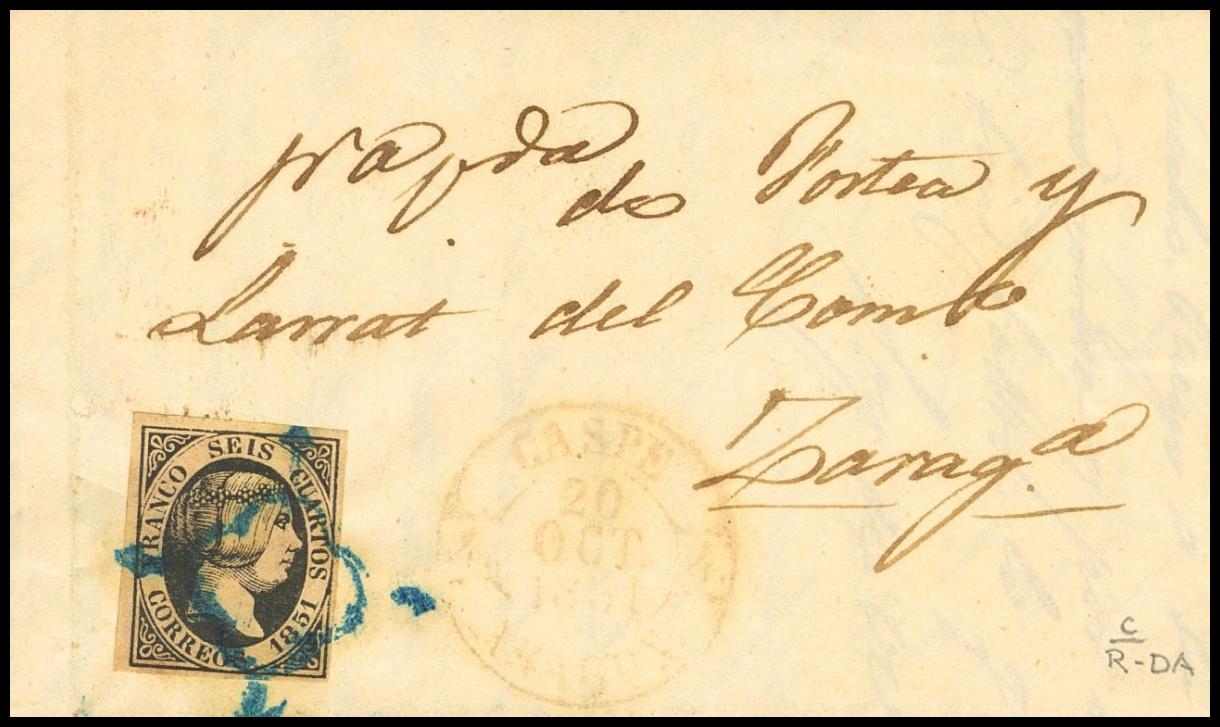 de Portea y
Larrat del Comº
Zaragª
FRANCO SEIS CUARTOS
CORREOS 1851
CASPE
20
OCT
1851
C
R-DA